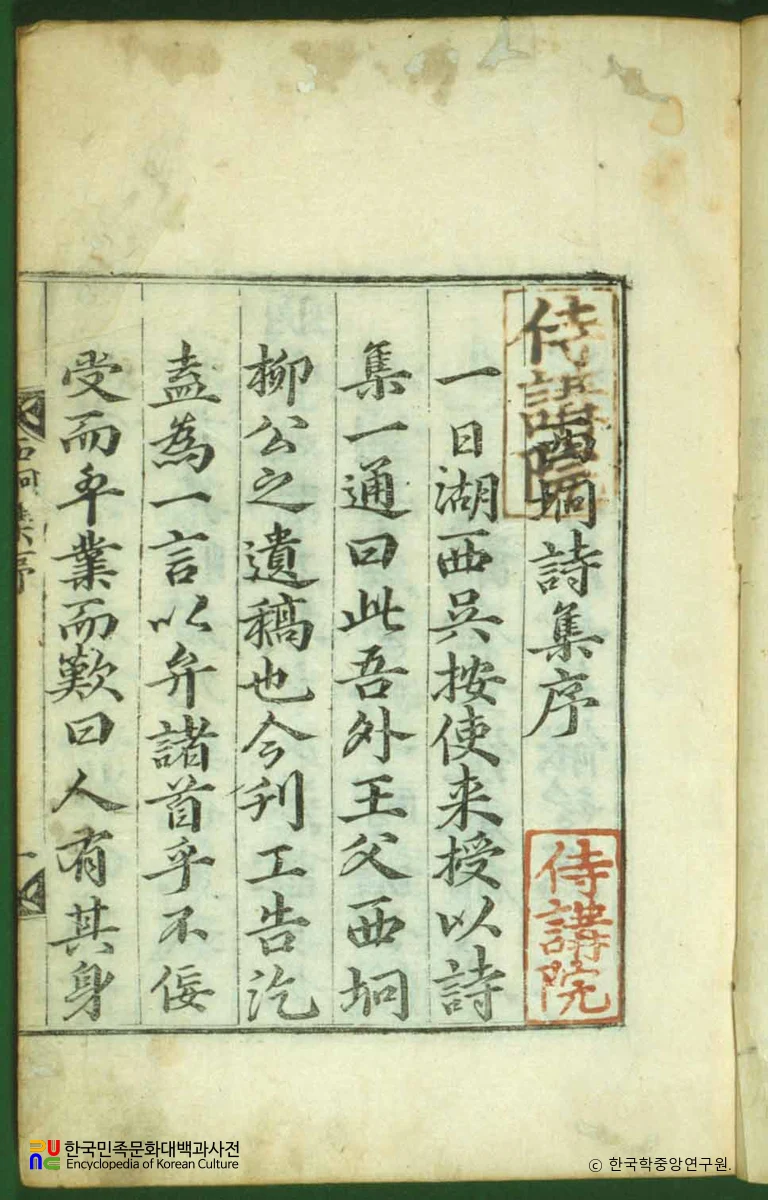 西坰詩集序
一日湖西吳按使来授以詩
集一通曰此吾外王父西坰
柳公之遺稿也今刋工告訖
盍為一言以弁諸首乎不佞
受而卒業而歎曰人有其身
侍講院
侍講院
한국민족문화대백과사전
Encyclopedia of Korean Culture
© 한국학중앙연구원.